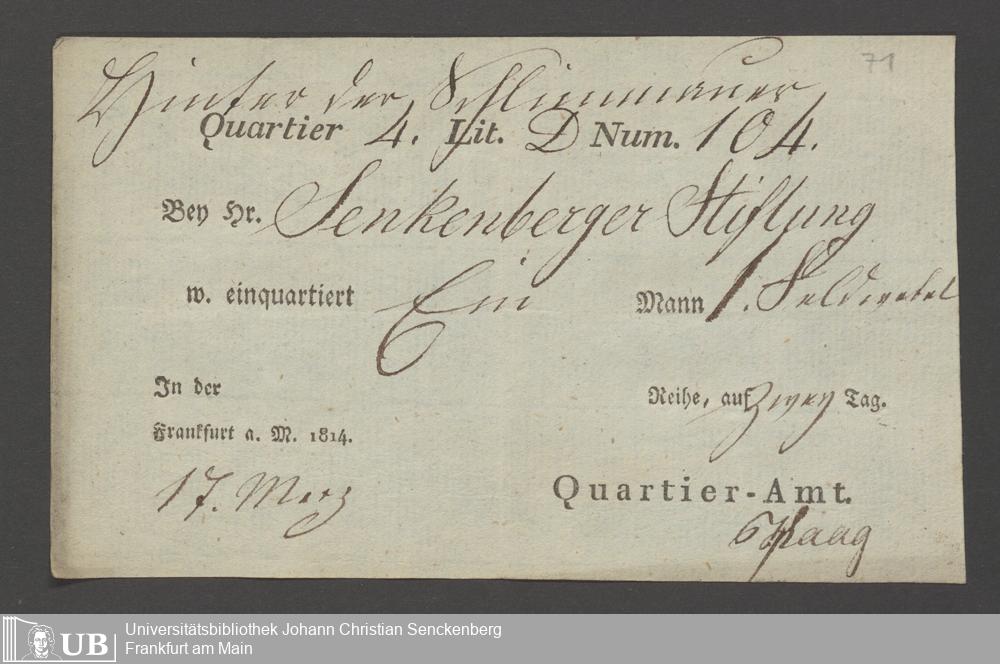 71
Hinter der Schlimmauer
Quartier 4. Lit. D Num. 104.
Bey Hr. Senkenberger Stiftung
w. einquartiert Ein Mann 1. Feldwebel
In der Reihe, auf zwey Tag.
Frankfurt a. M. 1814.
17. Merz
Quartier-Amt.
Haag
UB
Universitätsbibliothek Johann Christian Senckenberg
Frankfurt am Main